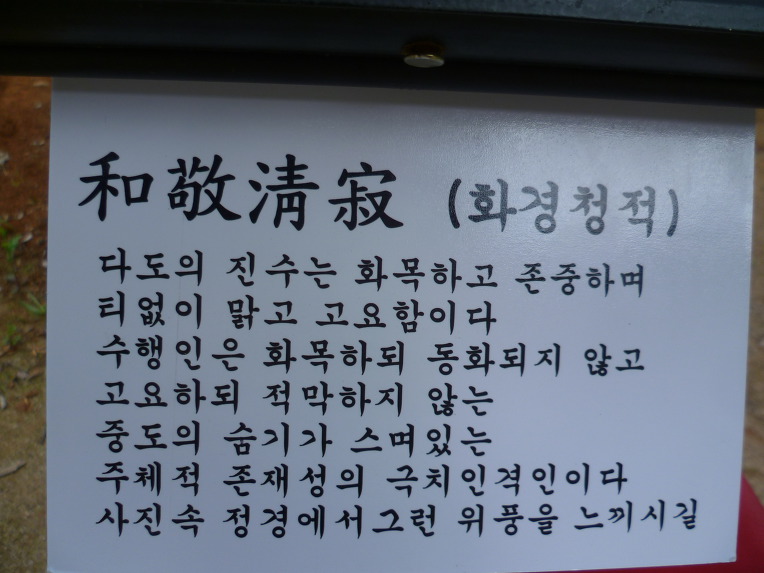 和敬淸寂 (화경청적)
다도의 진수는 화목하고 존중하며
티없이 맑고 고요함이다
수행인은 화목하되 동화되지 않고
고요하되 적막하지 않는
중도의 숨기가 스며있는
주체적 존재성의 극치인격인이다
사진속 정경에서그런 위풍을 느끼시길